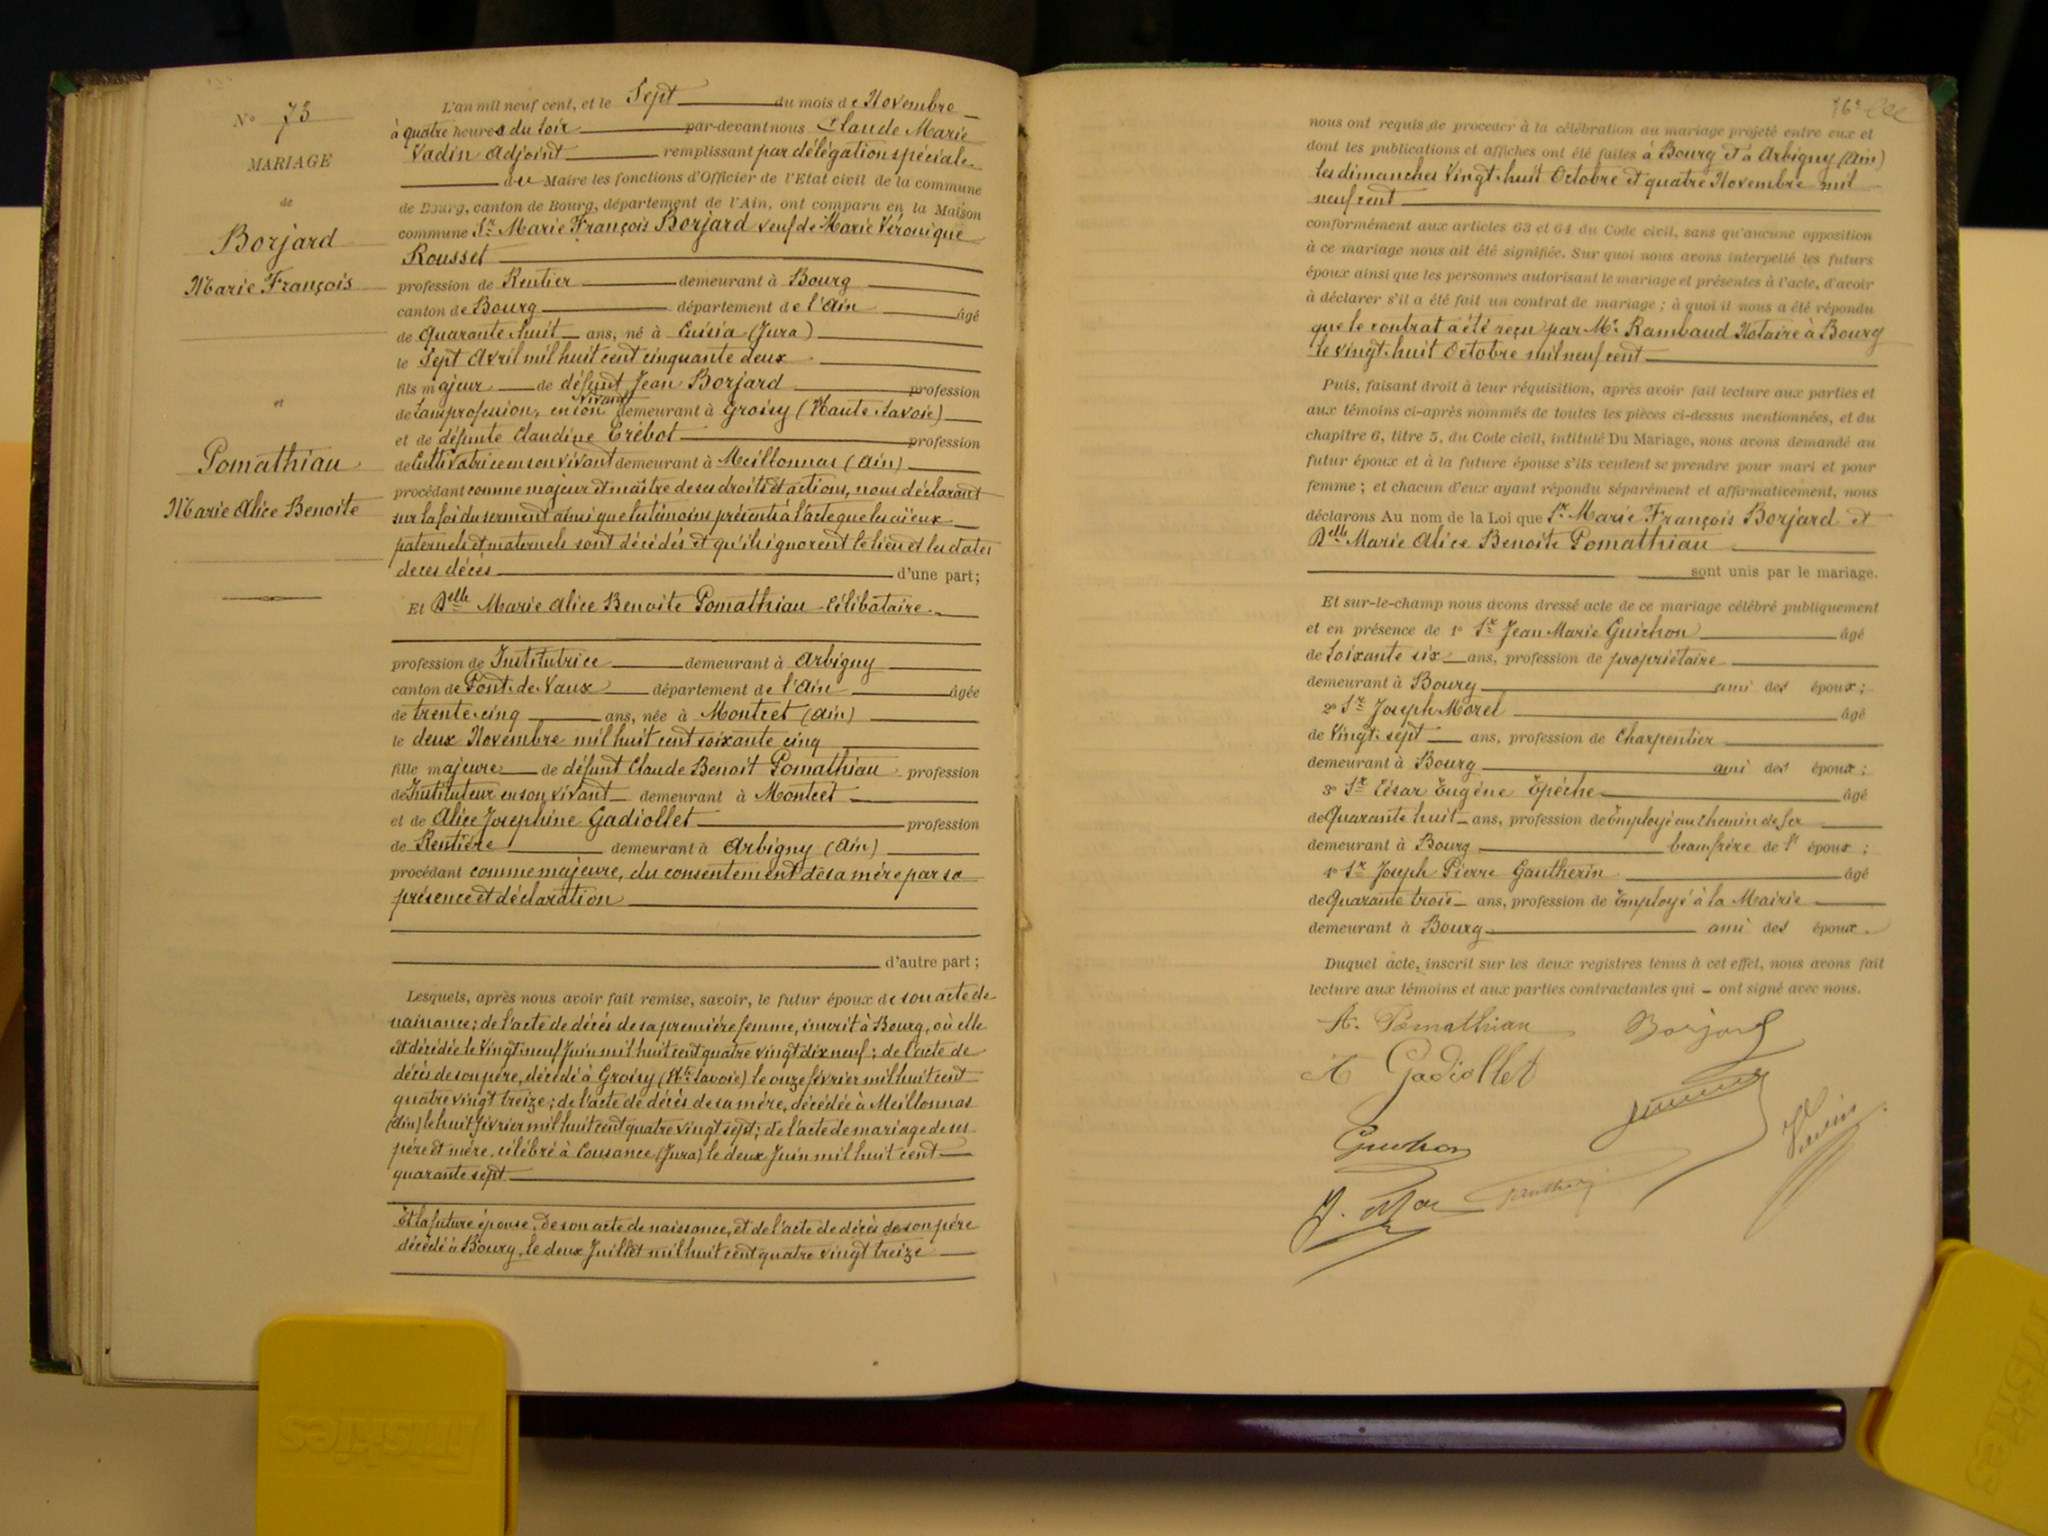 N° 73
MARIAGE
de
Borjard
Marie François
et
Pomathiau
Marie Alice Benoite
L'an mil neuf cent, et le Sept du mois de Novembre
à quatre heures du soir par-devant nous Claude Marie
Vadin Adjoint remplissant par délégation spéciale
du Maire les fonctions d'Officier de l'Etat civil de la commune
de Bourg, canton de Bourg, département de l'Ain, ont comparu en la Maison
commune Sr Marie François Borjard veuf de Marie Véronique
Rousset
profession de Rentier demeurant à Bourg
canton de Bourg département de l'Ain âgé
de Quarante huit ans, né à Cuisia (Jura)
le Sept Avril mil huit cent cinquante deux
fils majeur de défunt Jean Borjard profession
de Sans profession, en son vivant demeurant à Groisy (Haute Savoie)
et de défunte Claudine Trébot profession
de Cultivatrice en son vivant demeurant à Meillonnas (Ain)
procédant comme majeur et maître de ses droits et actions, nous déclarant
sur la foi du serment ainsi que les témoins présents à l'acte que les aïeux
paternels et maternels sont décédés et qu'ils ignorent le lieu et les dates
de ces décés d'une part;
Et Delle Marie Alice Benoite Pomathiau Célibataire
profession de Institutrice demeurant à Arbigny
canton de Pont-de-Vaux département de l'Ain âgée
de trente cinq ans, née à Montcet (Ain)
le deux Novembre mil huit cent soixante cinq
fille majeure de défunt Claude Benoit Pomathiau profession
de Instituteur en son vivant demeurant à Montcet
et de Alice Josephine Gadiollet profession
de Rentière demeurant à Arbigny (Ain)
procédant comme majeure, du consentement de sa mère par sa
présence et déclaration
d'autre part;
Lesquels, après nous avoir fait remise, savoir, le futur époux de son acte de
naissance; de l'acte de décés de sa première femme, inscrit à Bourg, où elle
est décédée le Vingt neuf Juin mil huit cent quatre vingt dix neuf; de l'acte de
décès de son père, décédé à Groisy (Hte Savoie) le onze février mil huit cent
quatre vingt treize; de l'acte de décès de sa mère, décédée à Meillonnas
(Ain) le huit février mil huit cent quatre vingt sept; de l'acte de mariage de ses
père et mère, célébré à Cousance (Jura) le deux Juin mil huit cent
quarante sept
Et la future épouse, de son acte de naissance, et de l'acte de décès de son père
décédé à Bourg, le deux Juillet mil huit cent quatre vingt treize
nous ont requis de procéder à la célébration du mariage projeté entre eux et
dont les publications et affiches ont été faites à Bourg et à Arbigny (Ain)
les dimanches Vingt-huit Octobre et quatre Novembre mil
neuf cent
conformément aux articles 63 et 64 du Code civil, sans qu'aucune opposition
à ce mariage nous ait été signifiée. Sur quoi nous avons interpellé les futurs
époux ainsi que les personnes autorisant le mariage et présentes à l'acte, d'avoir
à déclarer s'il a été fait un contrat de mariage; à quoi il nous a été répondu
que le contrat a été reçu par Me Rambaud Notaire à Bourg
le vingt-huit Octobre mil neuf cent
Puis, faisant droit à leur réquisition, après avoir fait lecture aux parties et
aux témoins ci-après nommés de toutes les pièces ci-dessus mentionnées, et du
chapitre 6, titre 5, du Code civil, intitulé Du Mariage, nous avons demandé au
futur époux et à la future épouse s'ils veulent se prendre pour mari et pour
femme; et chacun d'eux ayant répondu séparément et affirmativement, nous
déclarons Au nom de la Loi que Sr Marie François Borjard et
Delle Marie Alice Benoite Pomathiau
sont unis par le mariage.
Et sur-le-champ nous avons dressé acte de ce mariage célébré publiquement
et en présence de 1° Sr Jean Marie Guichon âgé
de Soixante six ans, profession de propriétaire
demeurant à Bourg ami des époux;
2° Sr Joseph Morel âgé
de Vingt-sept ans, profession de Charpentier
demeurant à Bourg ami des époux;
3° Sr César Eugène Epêche âgé
de Quarante huit ans, profession de Employé au chemin de fer
demeurant à Bourg beaufrère de l' époux;
4° Sr Joseph Pierre Gautherin âgé
de Quarante trois ans, profession de Employé à la Mairie
demeurant à Bourg ami des époux.
Duquel acte, inscrit sur les deux registres tenus à cet effet, nous avons fait
lecture aux témoins et aux parties contractantes qui ont signé avec nous.
A. Pomathiau Borjard
A Gadiollet
Guichon